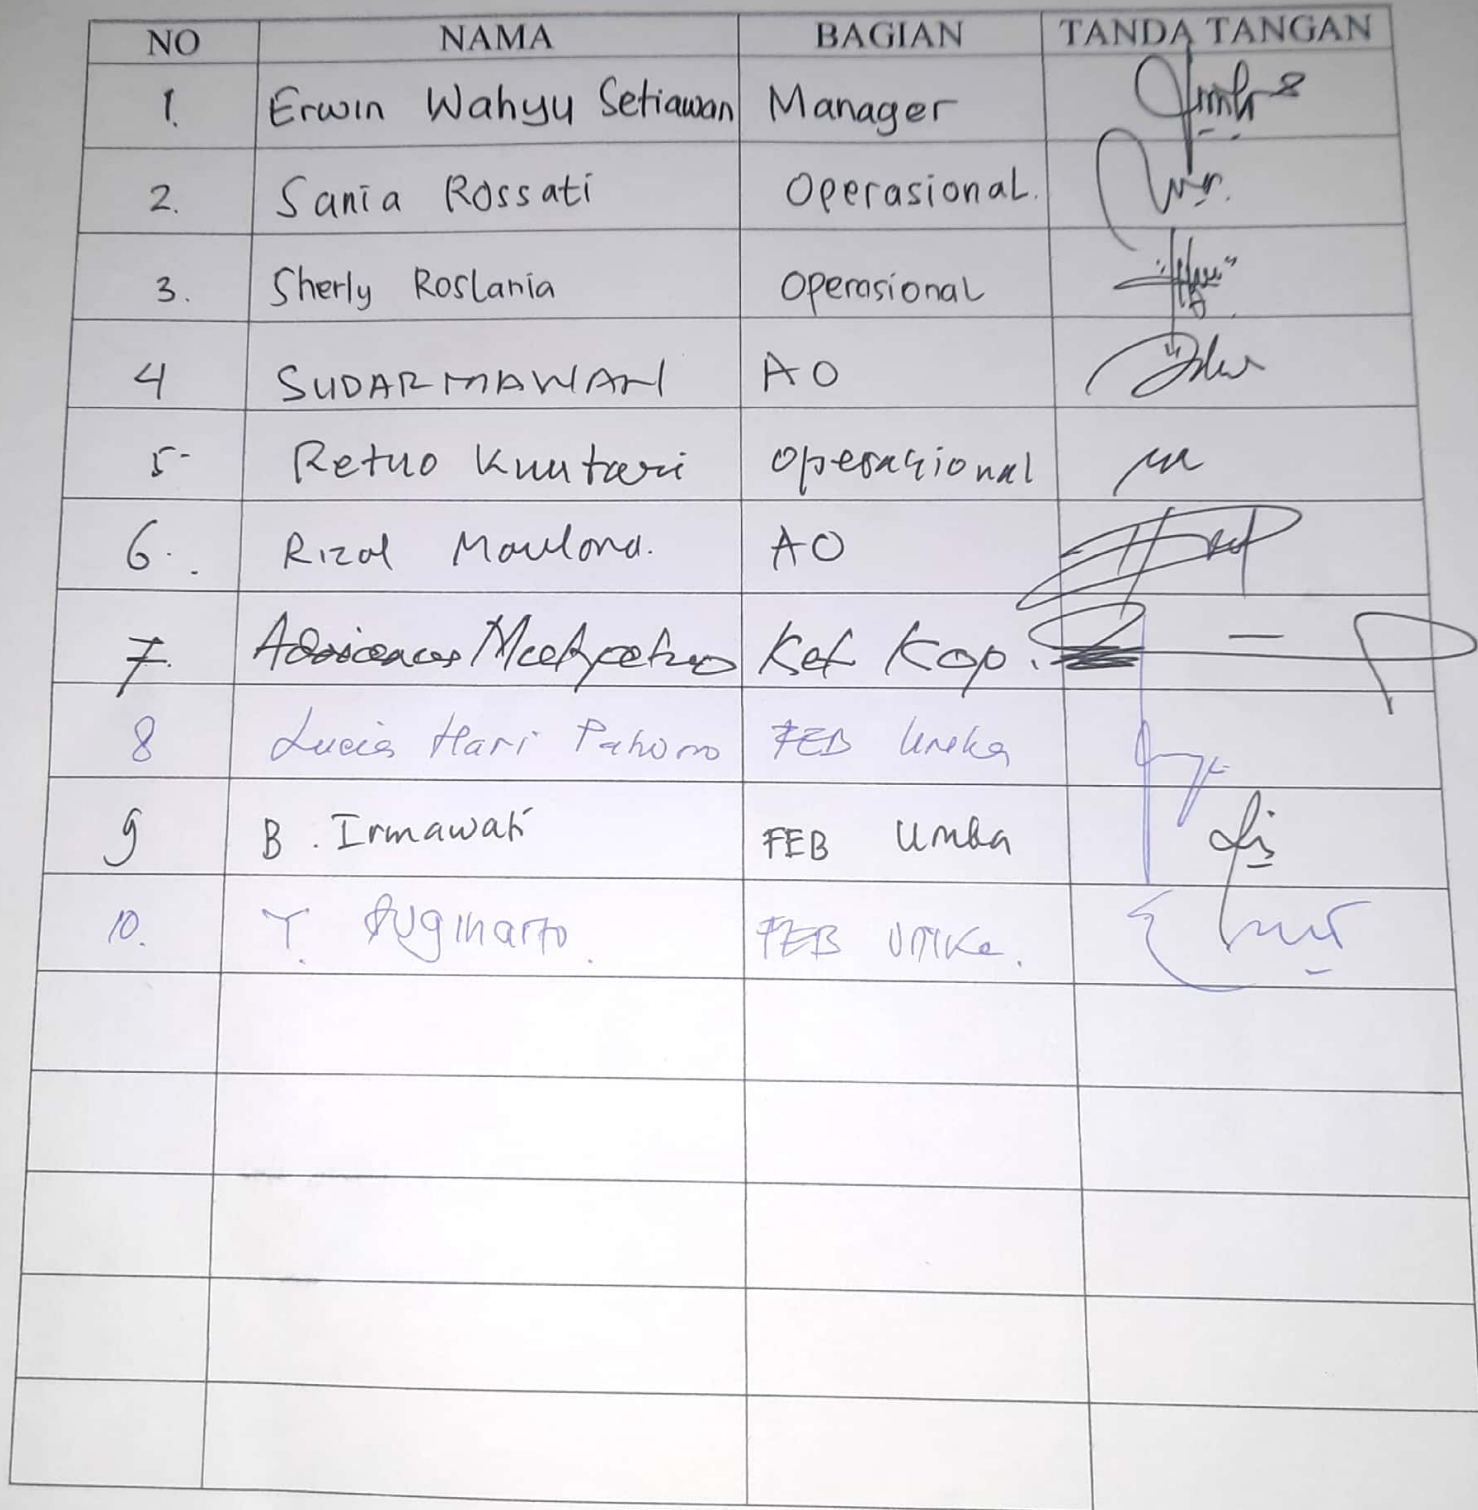 NO NAMA BAGIAN TANDA TANGAN
1. Erwin Wahyu Setiawan Manager
2. Sania Rossati Operasional.
3. Sherly Roslania Operasional
4 SUDARMAWAN AO
5- Retno Kuntari Operasional
6. Rizal Maulana. AO
7. Ket Kop.
8 Lucia Hari FEB Unika
9 B. Irmawati FEB Unika
10. Y. Sugiharto. FEB Unika.